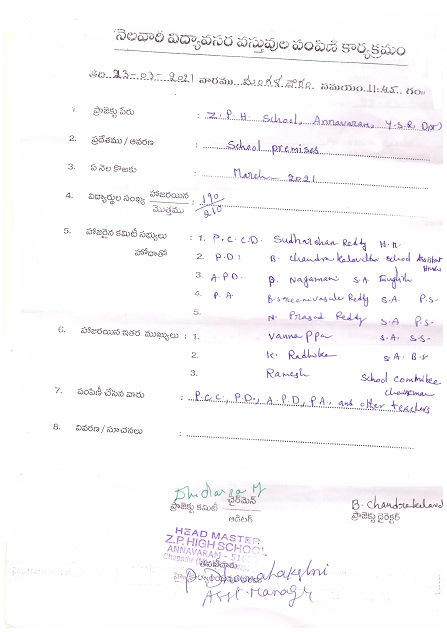 నెలవారీ విద్యావసర వస్తువుల పంపిణీ కార్యక్రమం
తేది 23-03-2021 వారము మంగళవారం సమయం 11:45 గం
1. ప్రాజెక్టు పేరు : Z.P.H School, Annavaram, Y.S.R (Dist)
2. ప్రదేశము / ఆవరణ : School premises
3. ఏ నెల కొఱకు : March - 2021
4. విద్యార్థుల సంఖ్య హాజరయిన : 190
మొత్తము 210
5. హాజరైన కమిటీ సభ్యులు : 1. P.C.C.D. Sudharshan Reddy H.M
హోదాతో 2. P.D: B. Chandrakalavathi School Assistant
3. A.P.D. B. Nagamani S.A English
4. P.A B. Sreenivasula Reddy S.A. P.S-
5. N. Prasad Reddy S.A P.S-
6. హాజరయిన ఇతర ముఖ్యులు : 1. Vannappa S.A. S.S-
2. K. Radhika S.A B.S
3. Ramesh School Committee
Chairman
7. పంపిణీ చేసిన వారు : P.C.C., P.D., A.P.D, P.A, and other teachers
8. వివరణ / సూచనలు :
ప్రాజెక్టు కమిటీ ఛైర్‌మెన్
ఆడిటర్
B. Chandrakaland
ప్రాజెక్టు డైరెక్టర్
HEAD MASTER
Z.P. HIGH SCHOOL
ANNAVARAM -
Asst Manager